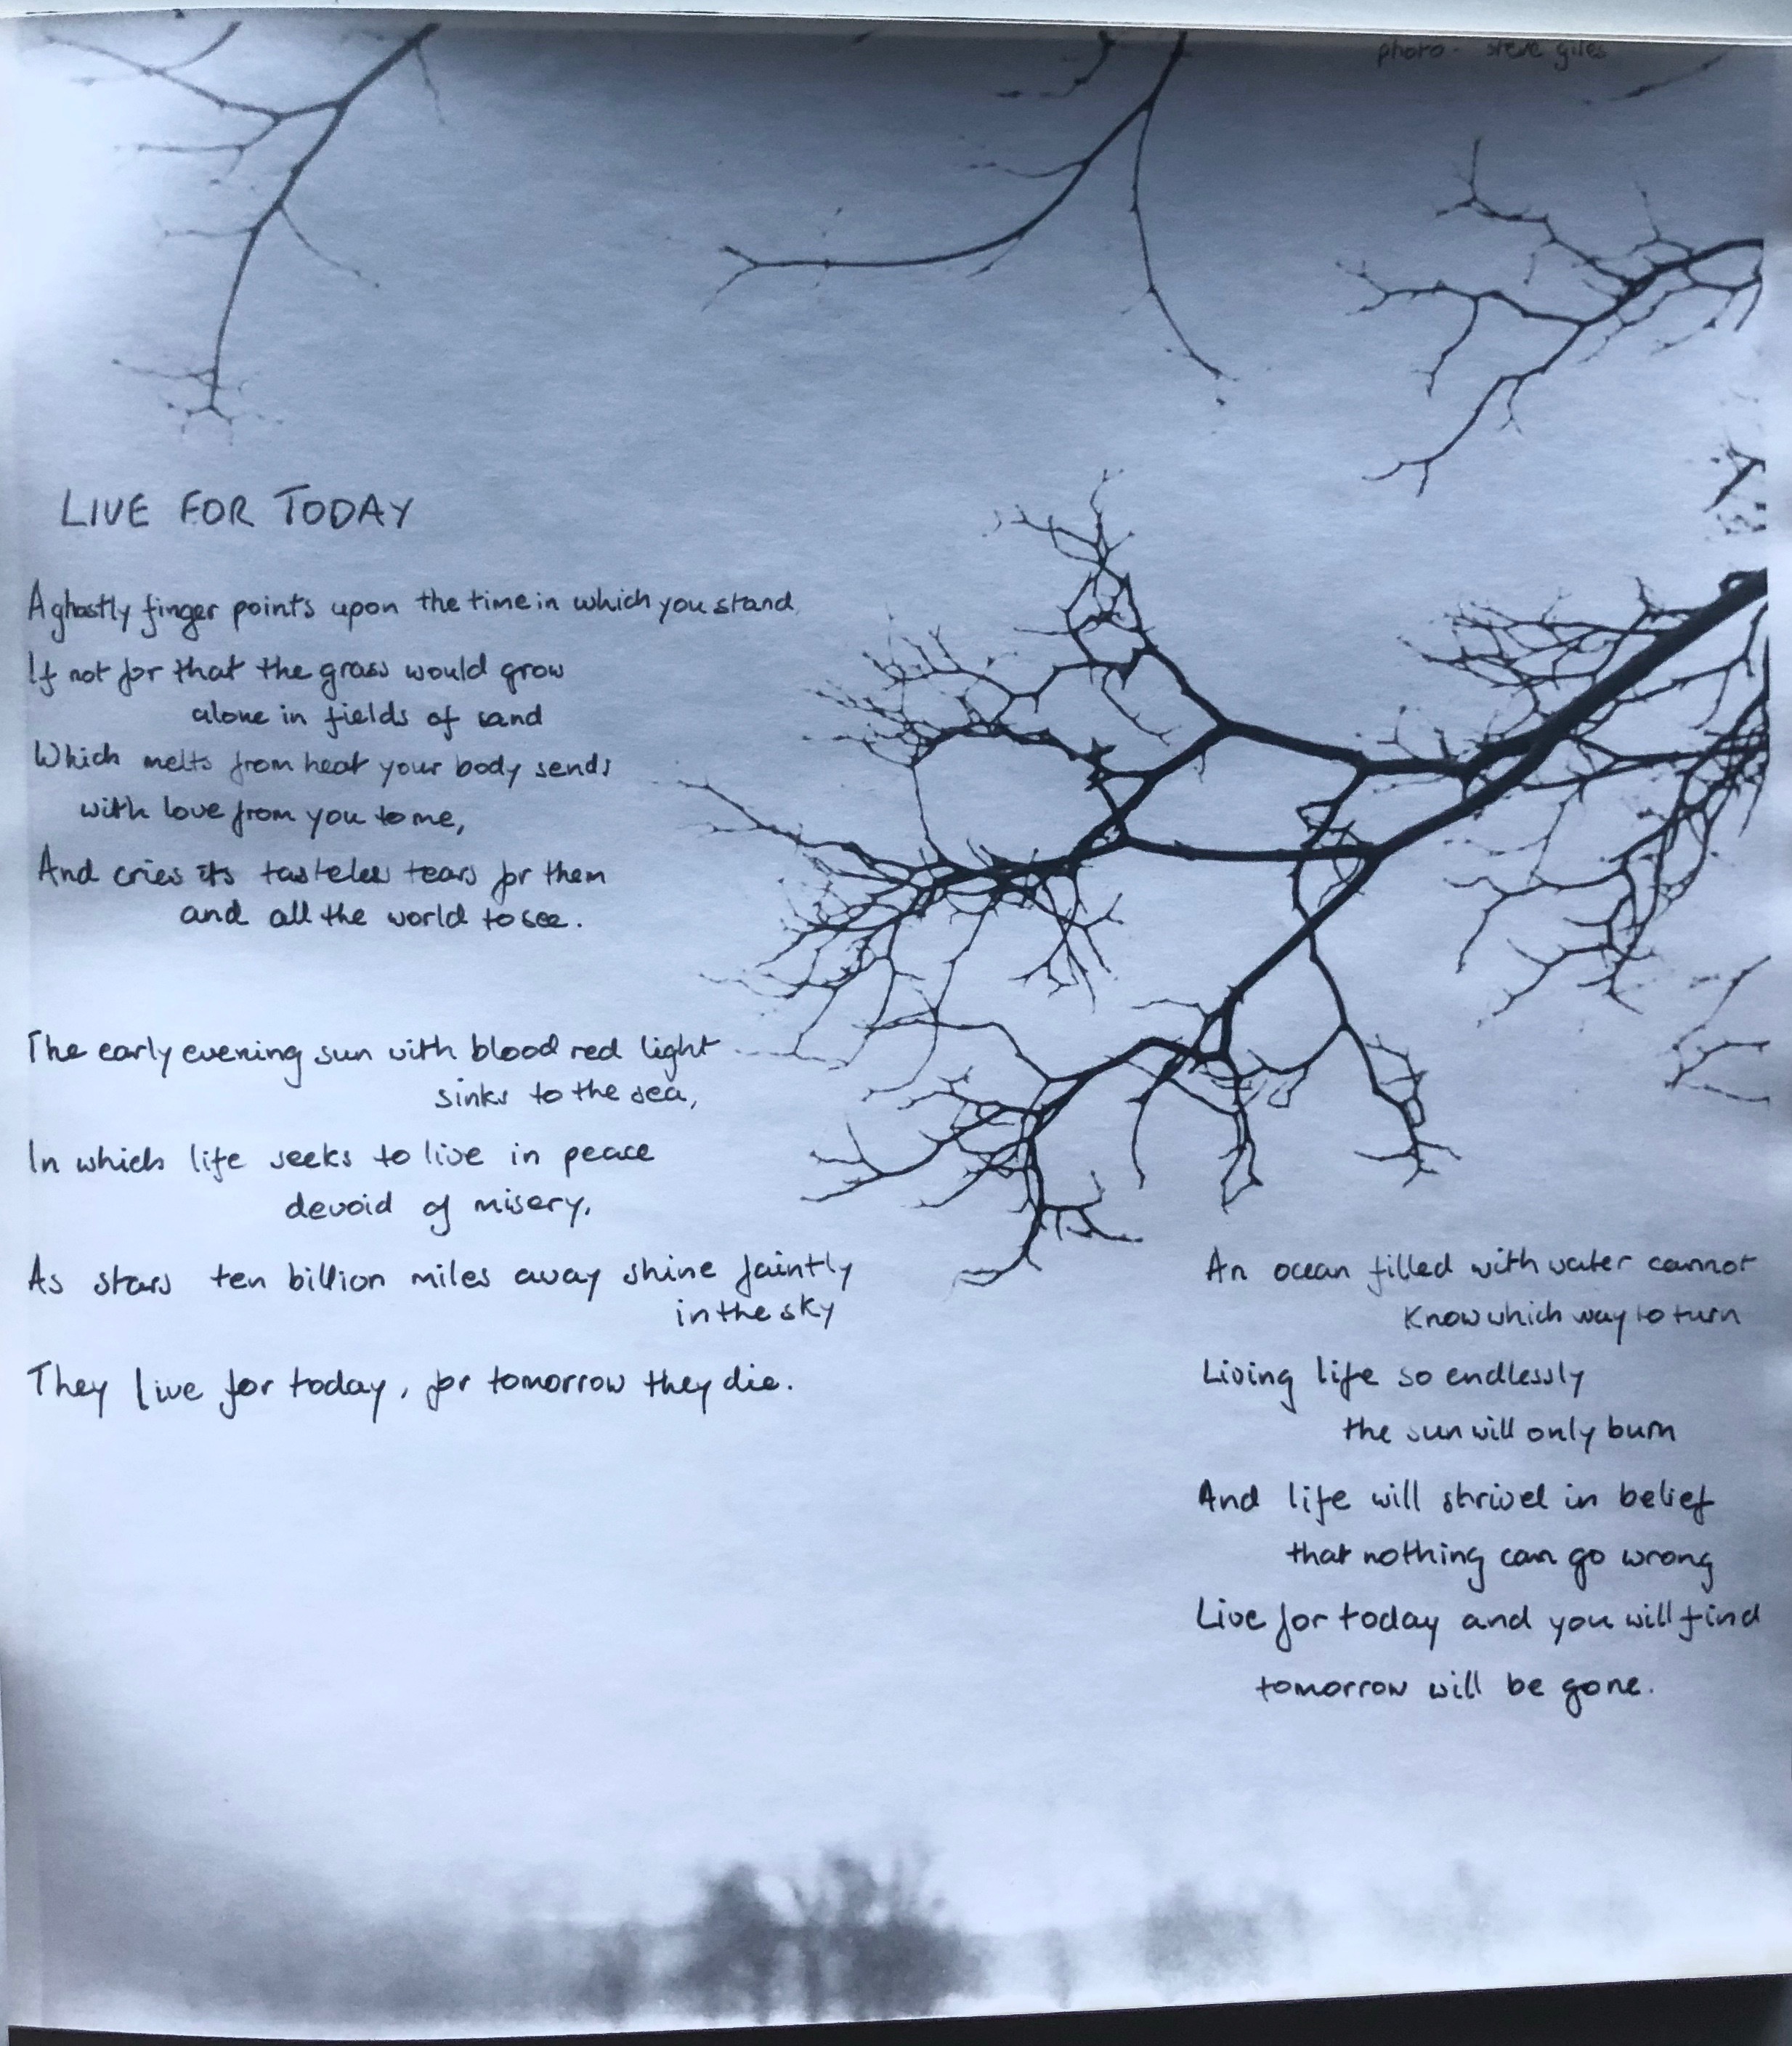 photo - steve giles
LIVE FOR TODAY
A ghostly finger points upon the time in which you stand,
If not for that the grass would grow
alone in fields of sand
Which melts from heat your body sends
with love from you to me,
And cries its tasteless tears for them
and all the world to see.
The early evening sun with blood red light
sinks to the sea,
In which life seeks to live in peace
devoid of misery,
As stars ten billion miles away shine faintly
in the sky
They live for today, for tomorrow they die.
An ocean filled with water cannot
know which way to turn
Living life so endlessly
the sun will only burn
And life will shrivel in belief
that nothing can go wrong
Live for today and you will find
tomorrow will be gone.